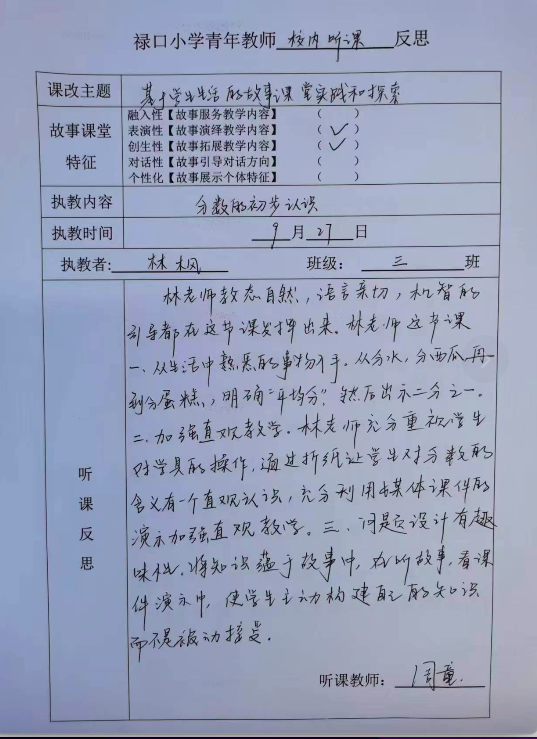 禄口小学青年教师 校内听课 反思
课改主题 基于学生生活的故事课堂实践和探索
故事课堂特征
融入性【故事服务教学内容】 （ ）
表演性【故事演绎教学内容】 （ ✓ ）
创生性【故事拓展教学内容】 （ ✓ ）
对话性【故事引导对话方向】 （ ）
个性化【故事展示个体特征】 （ ）
执教内容 分数的初步认识
执教时间 9 月 27 日
执教者: 林枫 班级: 三 班
听课反思
林老师教态自然，语言亲切，机智的
引导都在这节课发挥出来。林老师这节课
一、从生活中熟悉的事物入手。从分水，分西瓜，再
到分蛋糕，明确“平均分”。然后出示二分之一。
二、加强直观教学。林老师充分重视学生
对学具的操作，通过折纸让学生对分数的
含义有一个直观认识，充分利用媒体课件的
演示加强直观教学。三、问题设计有趣
味性。将知识蕴于故事中，在听故事，看课
件演示中，使学生主动构建自己的知识
而不是被动接受。
听课教师: 周童